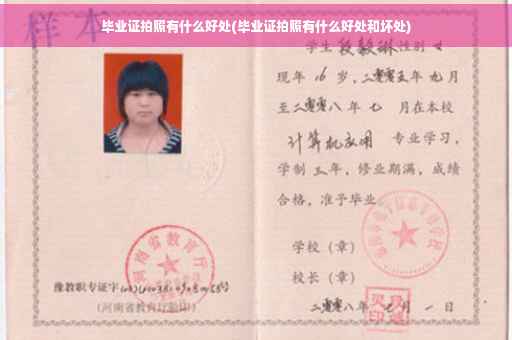 样本
毕业证拍照有什么好处(毕业证拍照有什么好处和坏处)
学生段毅琳性别 女
现年 16 岁,二零零五年 九月
至二零零八 年 七 月在本校
计算机应用 专业学习,
学制 三 年,修业期满,成绩
合格,准予毕业
学校(章)
校长(章)
二零零八年 七 月 一 日
河南省教育厅
豫教职专证字
(河南省教育厅验印)